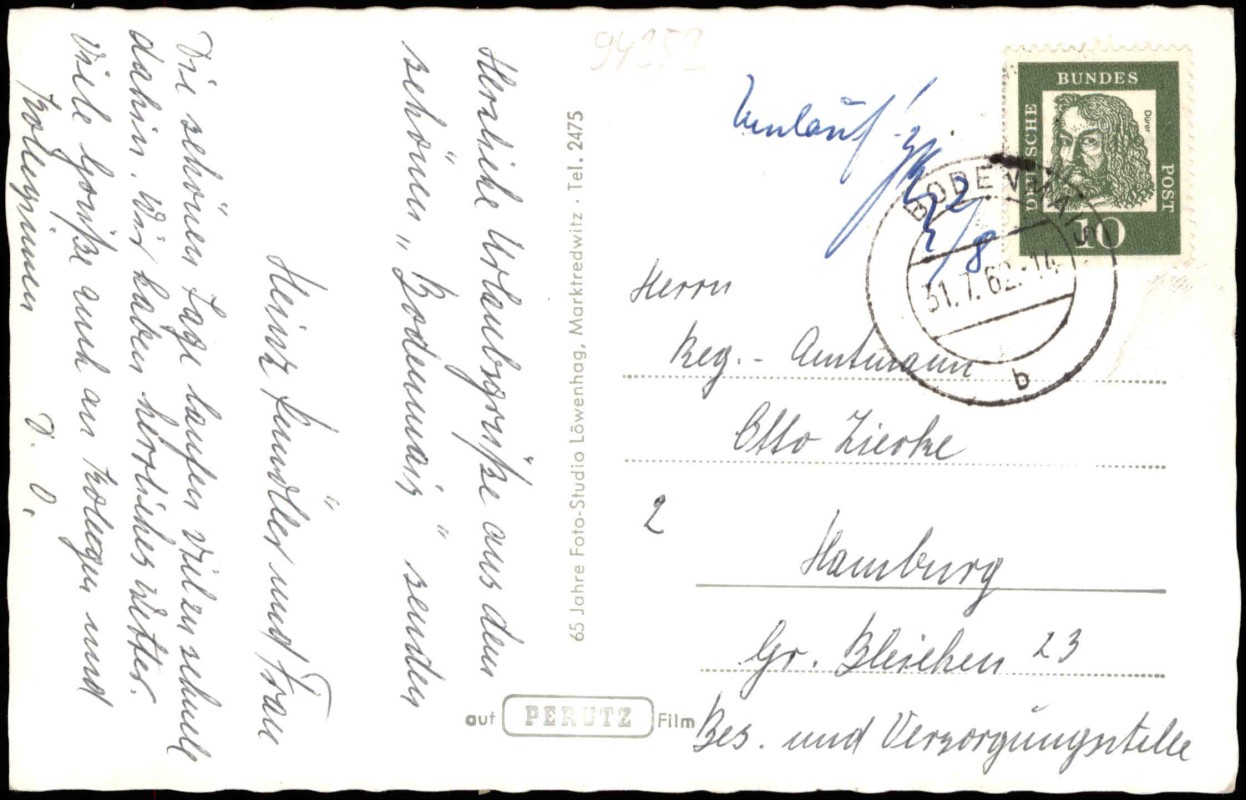 Herzliche Urlaubsgrüße aus dem
schönen „Bodenmais“ senden
Heinz und Frau
Die schönen Tage laufen viel zu schnell
dahin. Wir haben herrliches Wetter.
Viele Grüße auch an Kollegen und
Kolleginnen D. O.
65 Jahre Foto-Studio Löwenhag, Marktredwitz · Tel. 2475
auf PERUTZ Film
94252
Umlauf!
2/8
DEUTSCHE BUNDES POST
Dürer
10
BODENMAIS
31.7.62.-14
b
Herrn
Reg.- Amtmann
Otto Zierke
2
Hamburg
Gr. Bleichen 23
Bes. und Versorgungsstelle